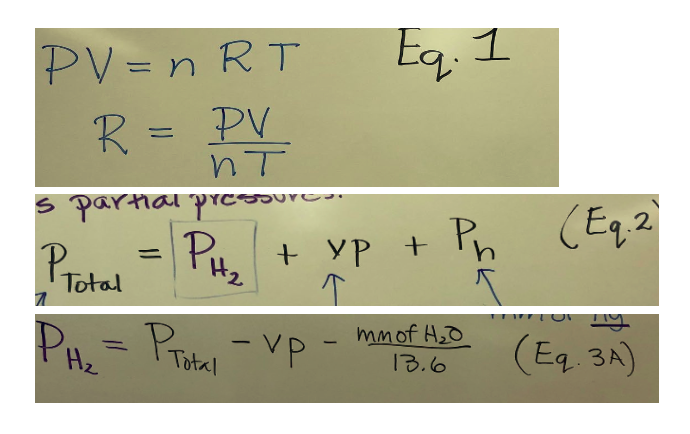 PV = n R T Eq. 1
R = PV / nT
s partial pressures.
P Total = P H2 + vp + P h (Eq.2)
mm of Hg
P H2 = P Total - vp - mm of H2O / 13.6 (Eq. 3A)